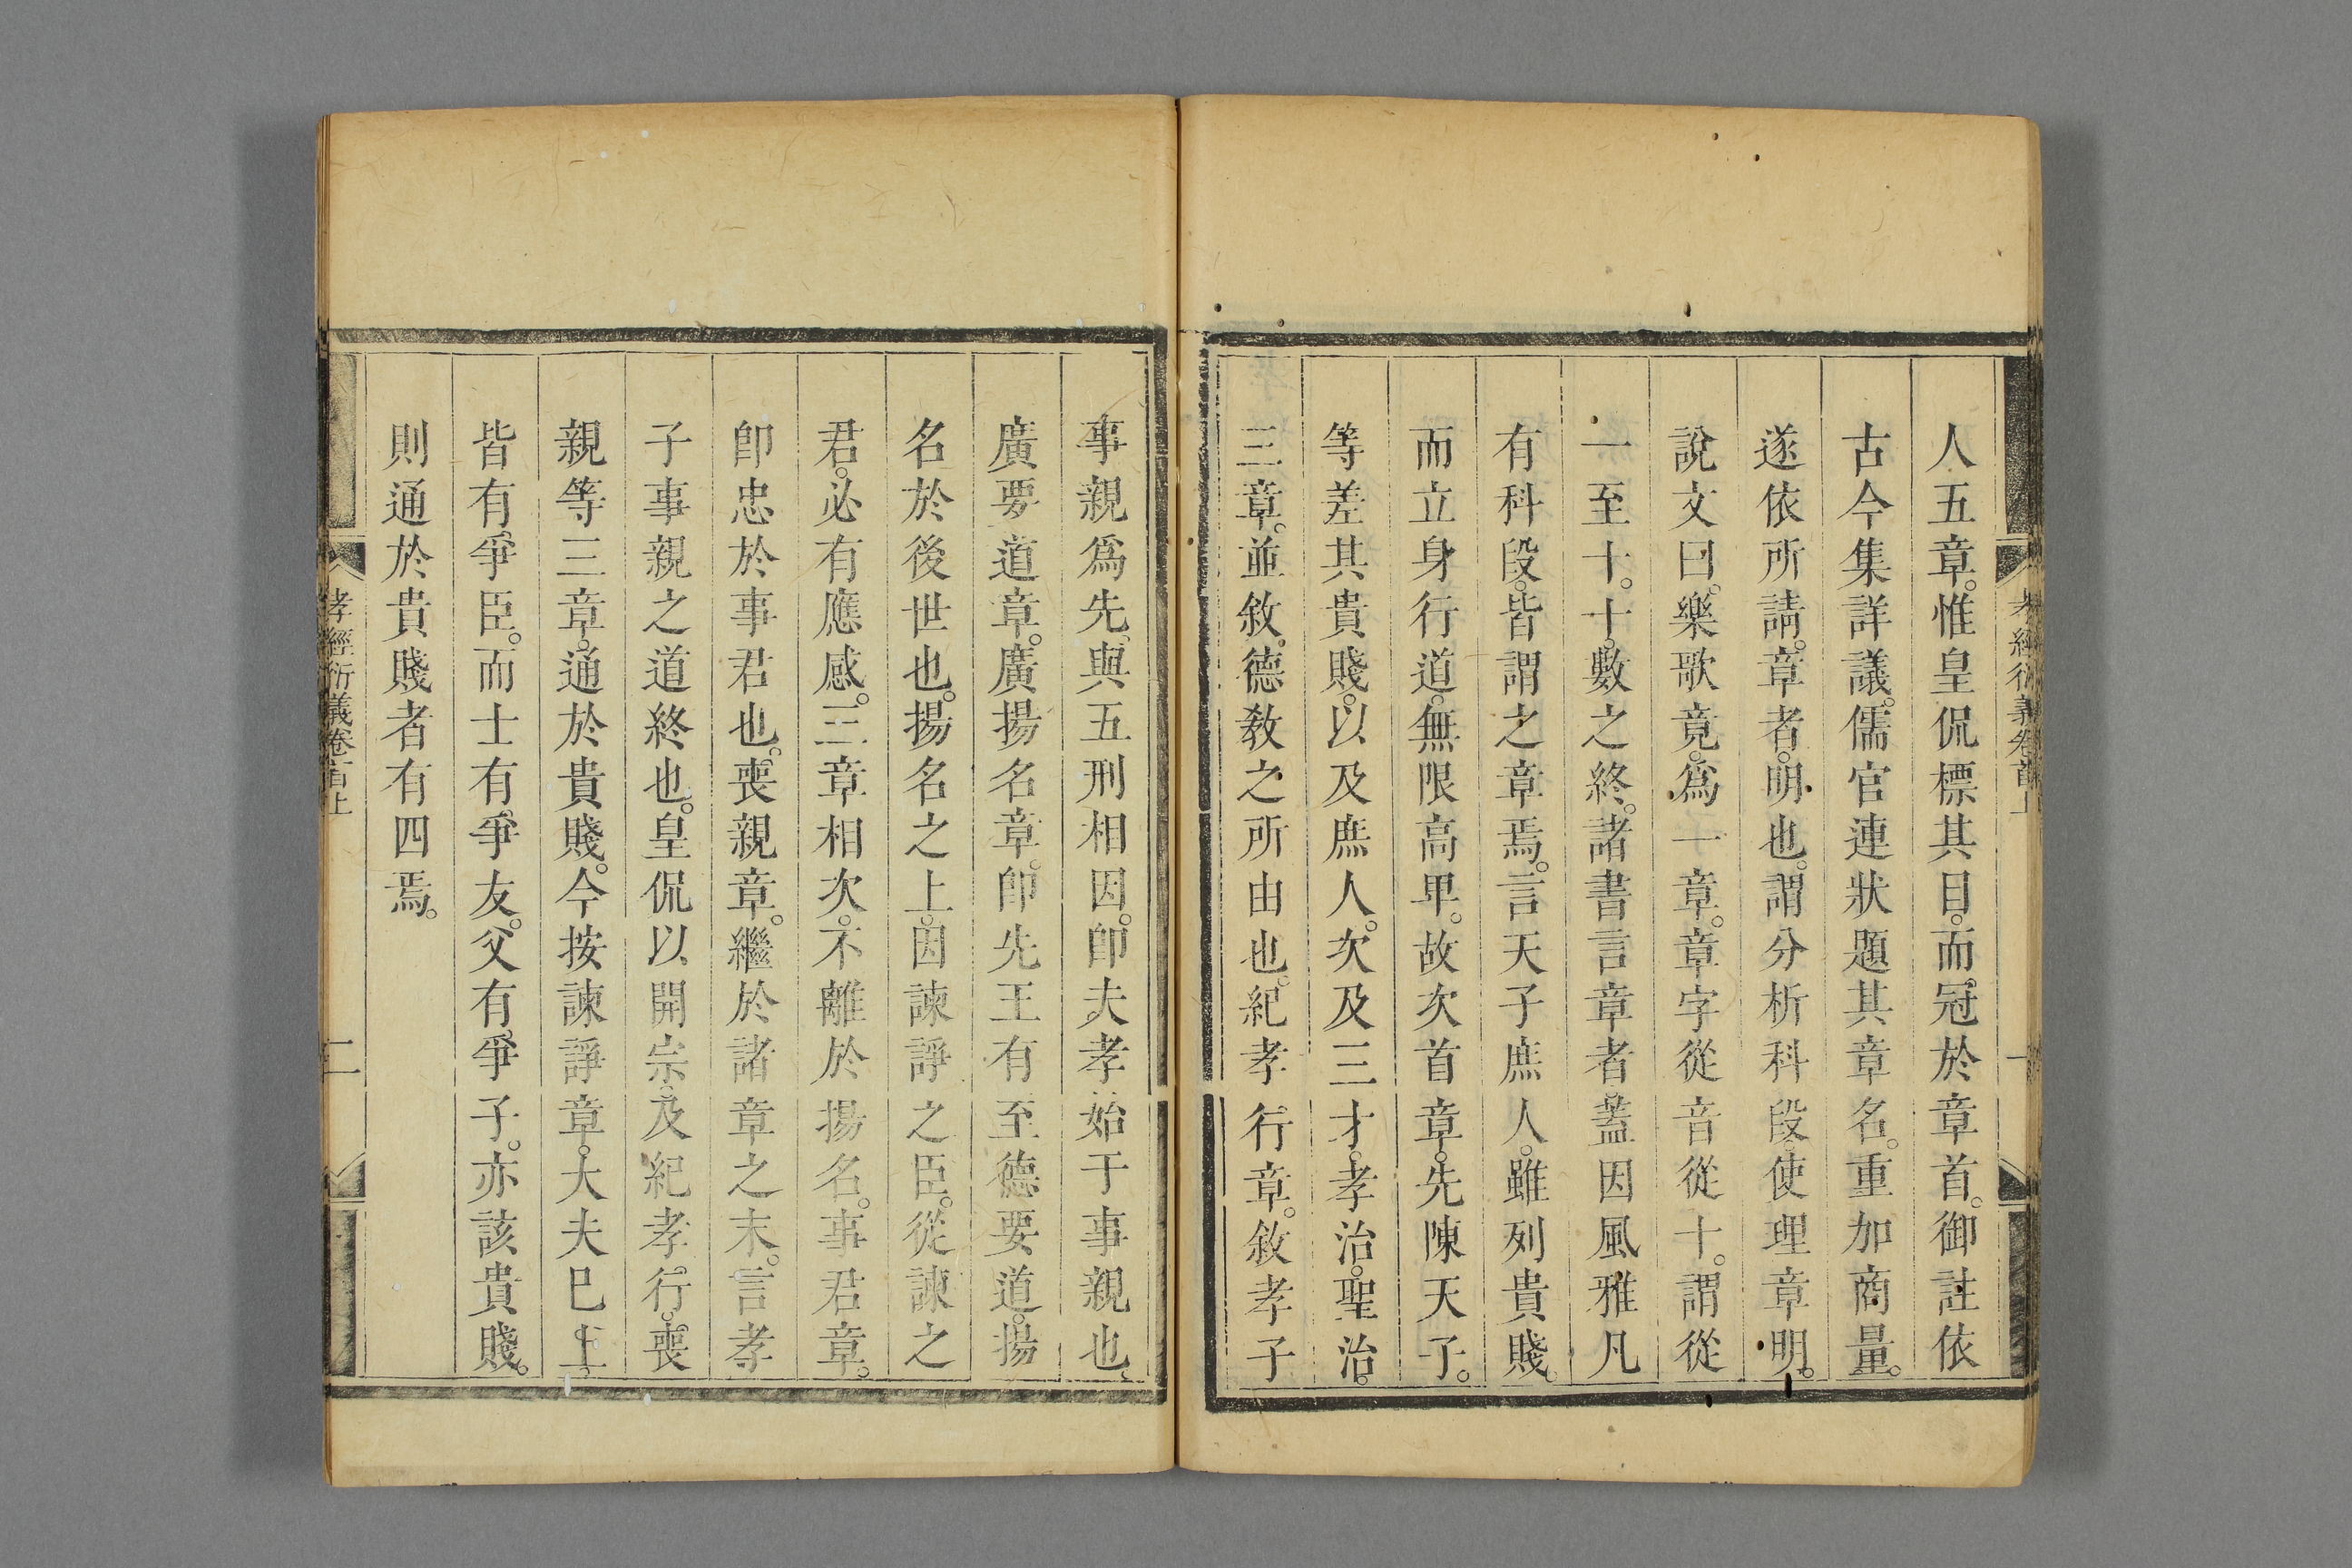 孝經衍義卷首上
一
人五章。惟皇侃標其目。而冠於章首。御註依
古今集詳議。儒官連狀題其章名。重加商量。
遂依所請。章者。明也。謂分析科段。使理章明。
說文曰。樂歌竟。爲一章。章字從音從十。謂從
一至十。十。數之終。諸書言章者。蓋因風雅。凡
有科段。皆謂之章焉。言天子庶人。雖列貴賤。
而立身行道。無限高卑。故次首章。先陳天子。
等差其貴賤。以及庶人。次及三才。孝治。聖治。
三章。並敘。德敎之所由也。紀孝行章。敘孝子
事親爲先。與五刑相因。卽夫孝始于事親也。
廣要道章。廣揚名章。卽先王有至德要道。揚
名於後世也。揚名之上。因諫諍之臣。從諫之
君。必有應感。三章相次。不離於揚名。事君章。
卽忠於事君也。喪親章。繼於諸章之末。言孝
子事親之道終也。皇侃以開宗。及紀孝行。喪
親等三章。通於貴賤。今按諫諍章。大夫巳上。
皆有爭臣。而士有爭友。父有爭子。亦該貴賤。
則通於貴賤者有四焉。
孝經衍義卷首上
二